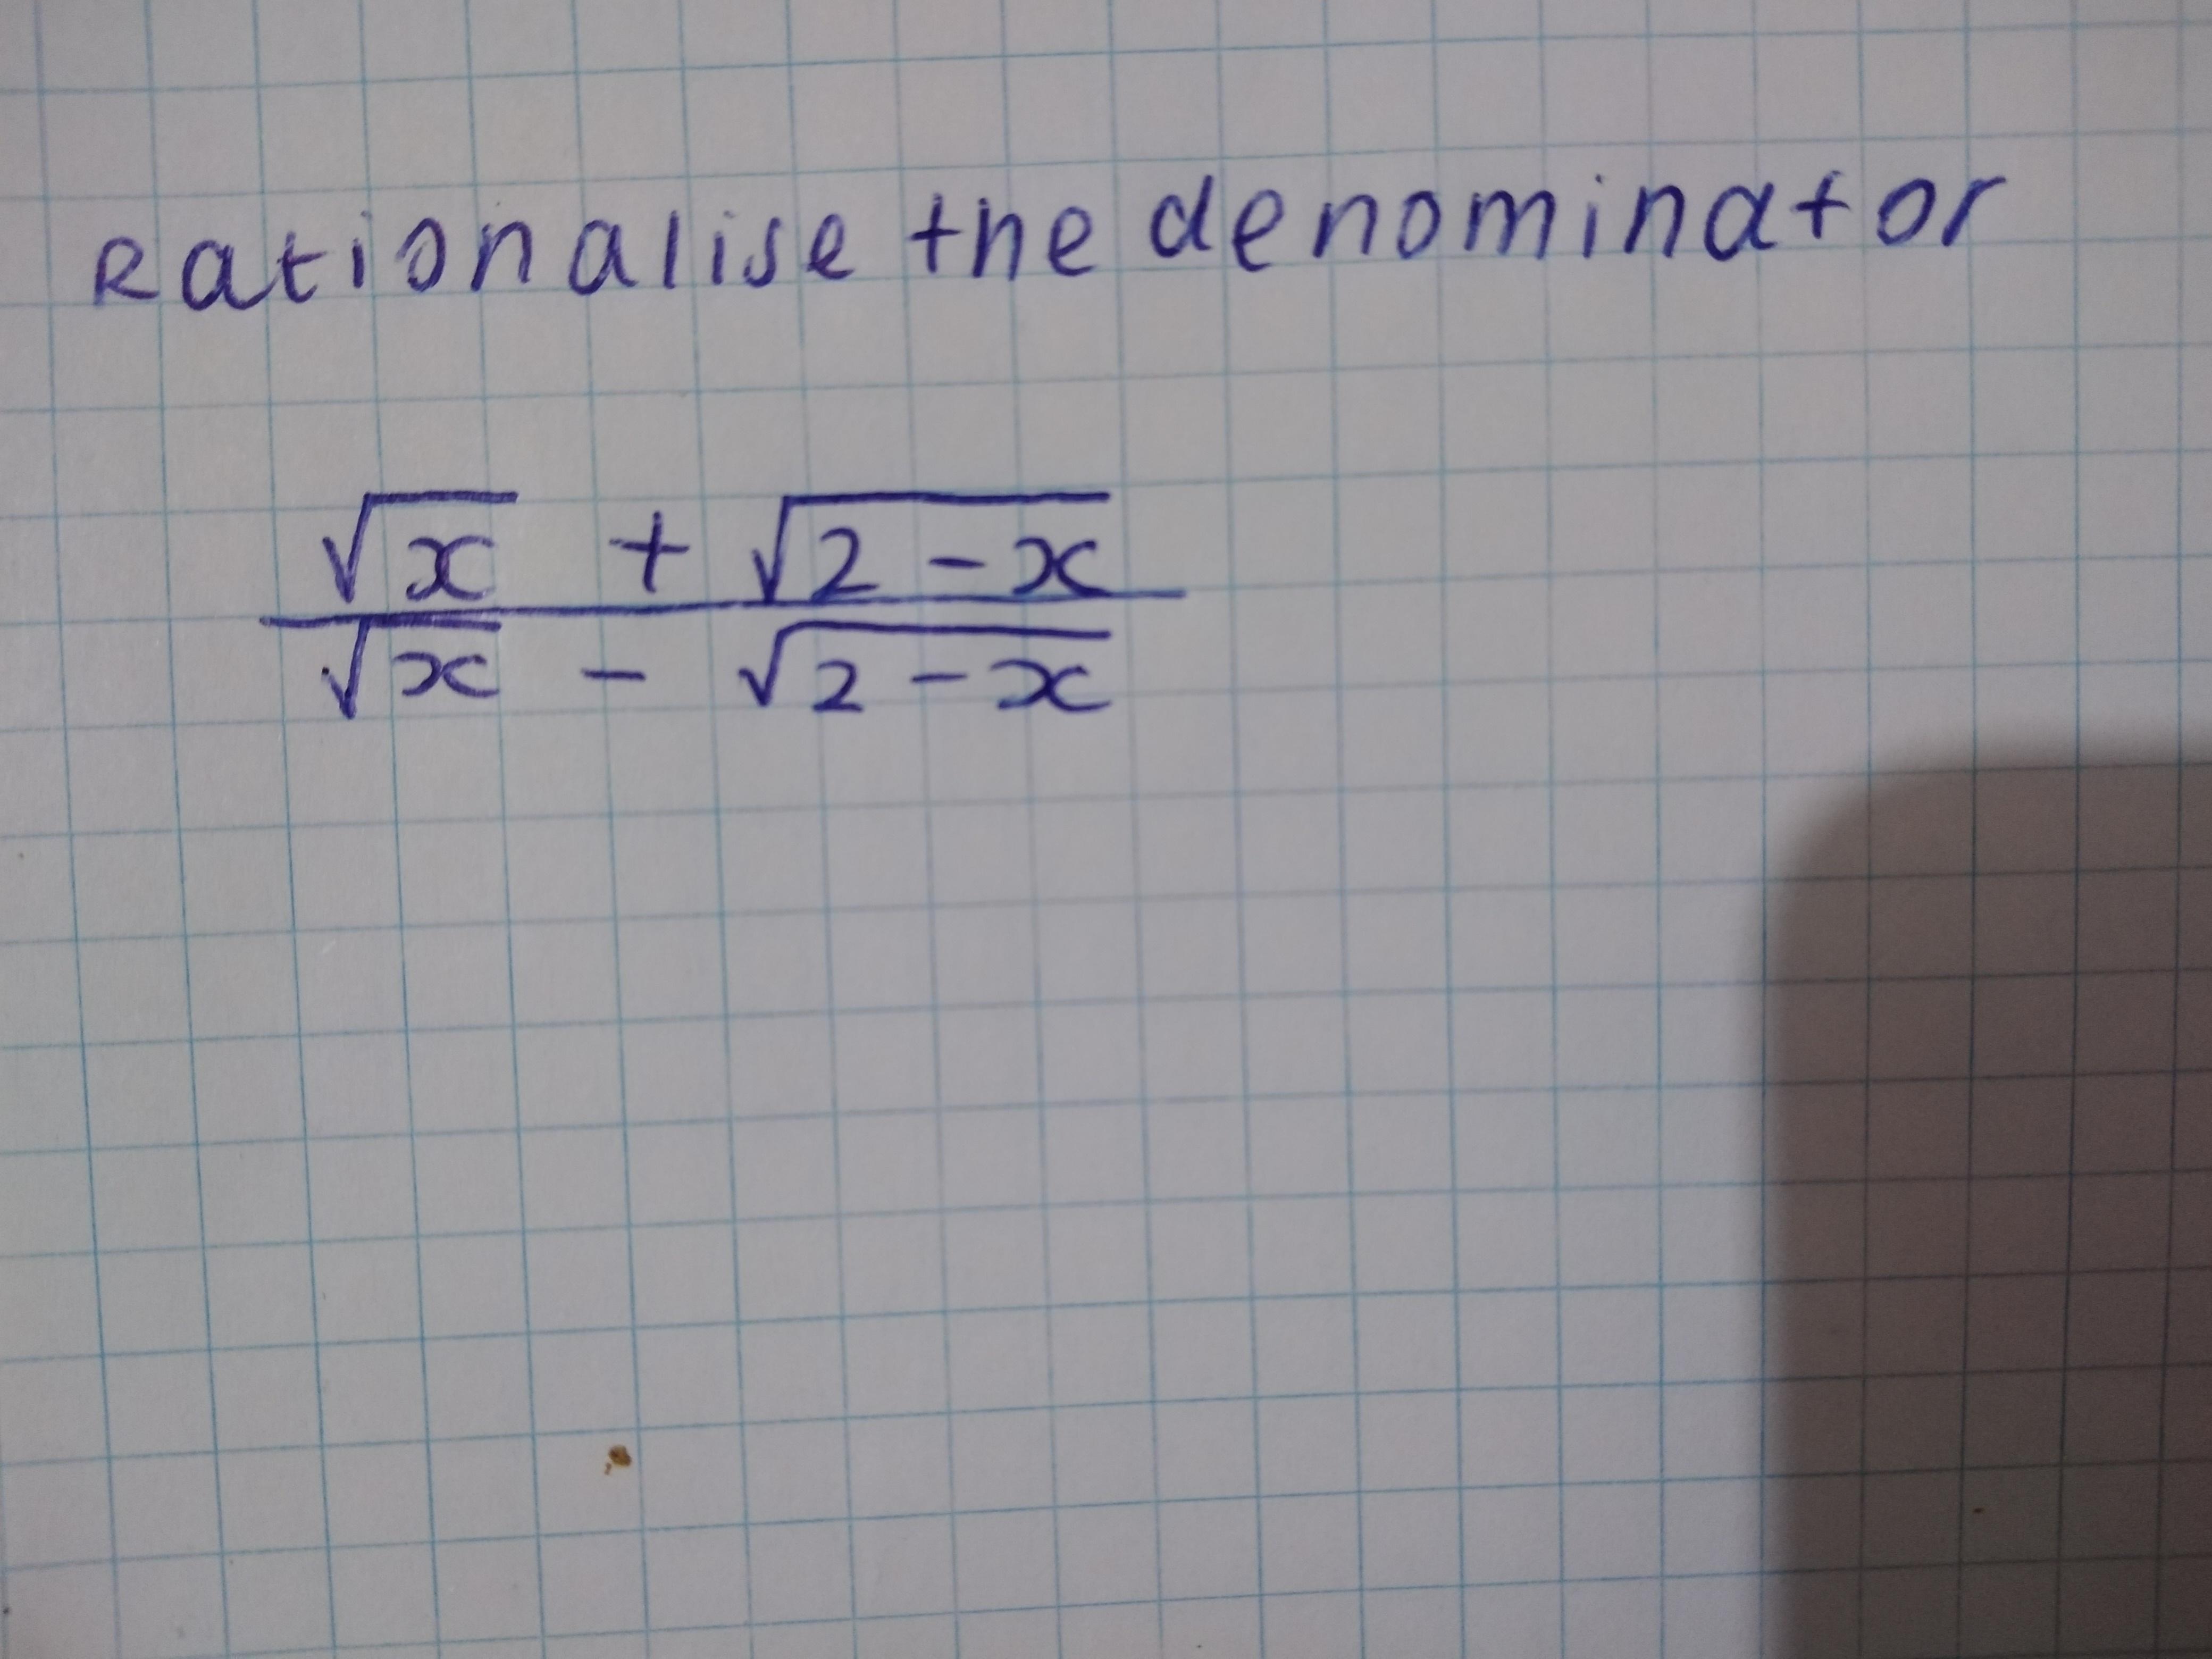 Rationalise the denominator
√x + √2 - x
√x - √2 - x